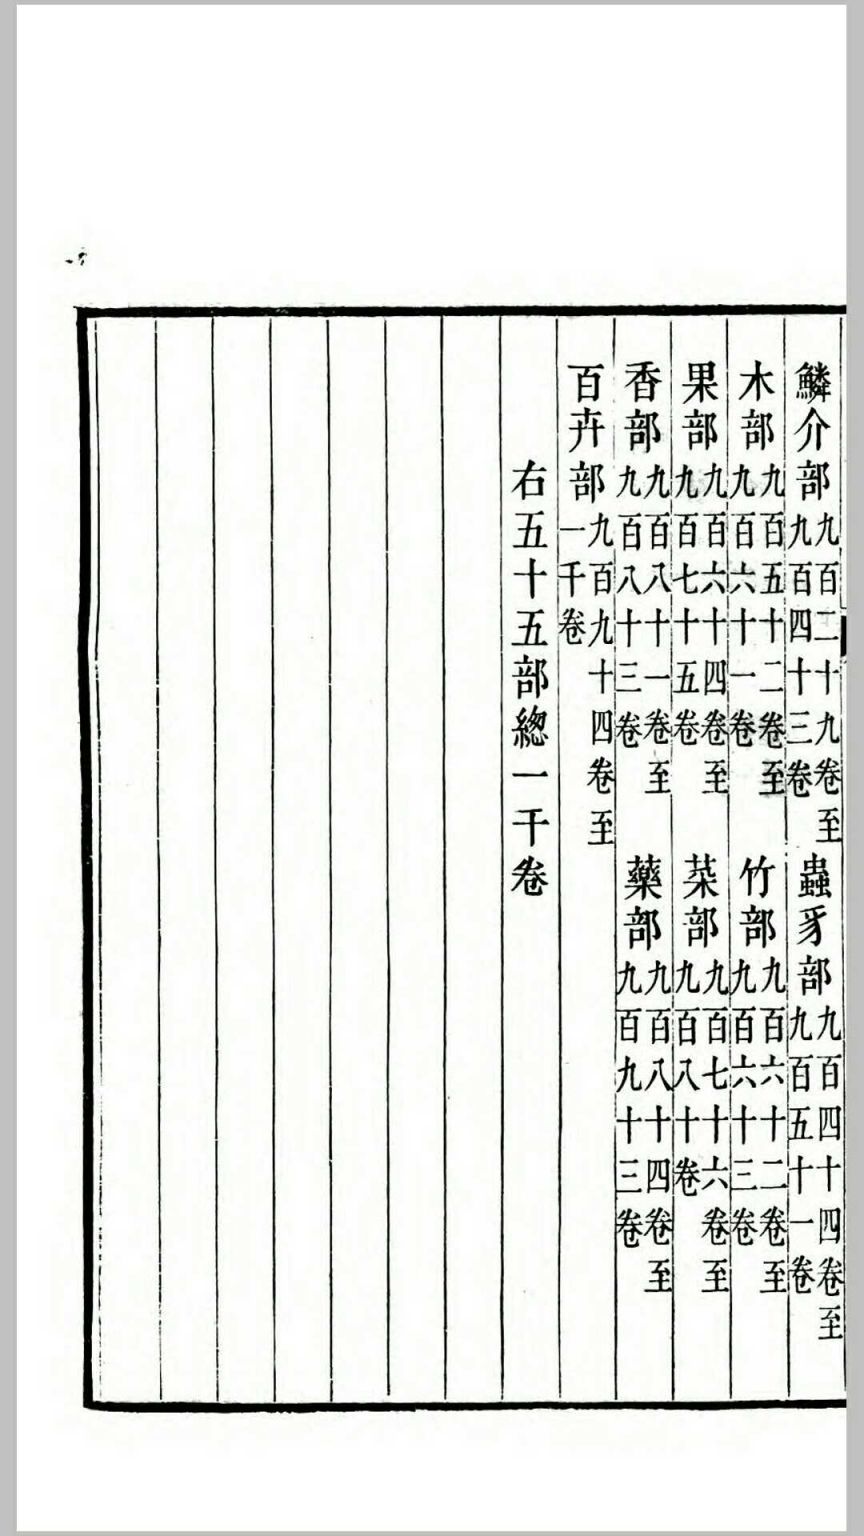 鱗介部九百二十九卷至九百四十三卷　蟲豸部九百四十四卷至九百五十一卷
木部九百五十二卷至九百六十一卷　竹部九百六十二卷至九百六十三卷
果部九百六十四卷至九百七十五卷　菜部九百七十六卷至九百八十卷
香部九百八十一卷至九百八十三卷　藥部九百八十四卷至九百九十三卷
百卉部九百九十四卷至一千卷
右五十五部總一千卷